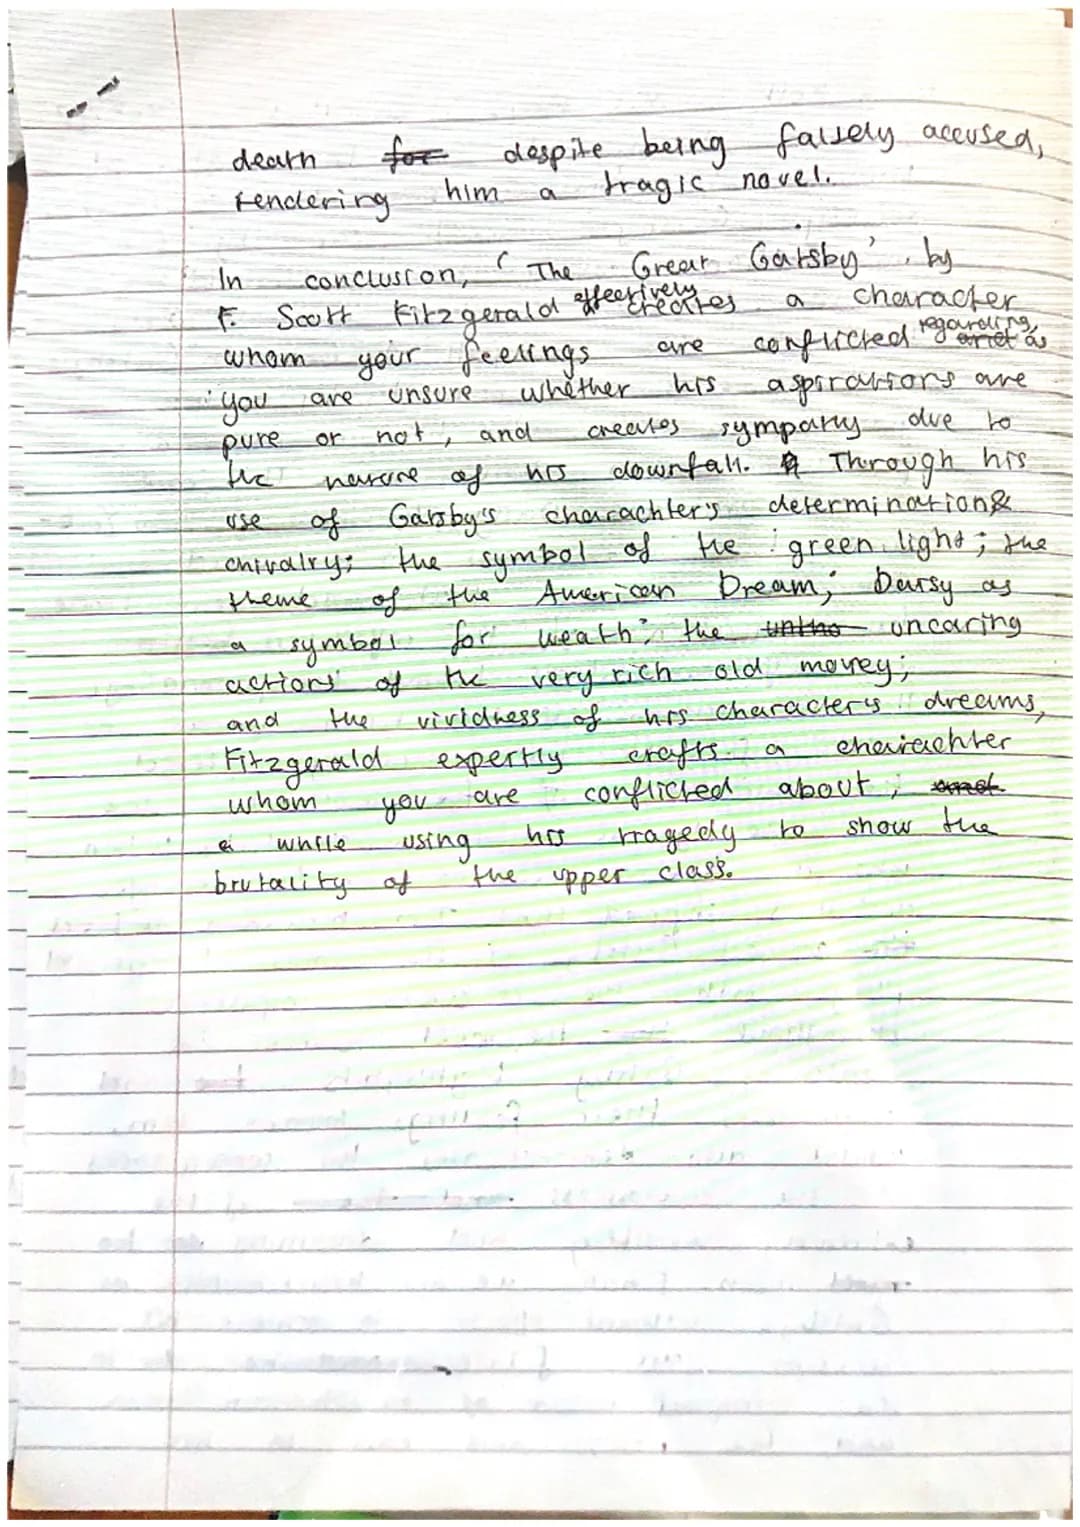 death for despite being falsely accused,
rendering him a tragic novel.
In conclusion, 'The Great Gatsby', by
F. Scott Fitzgerald effectively creates a character
whom your feelings are conflicted regarding, as
you are unsure whether his aspirations are
pure or not, and creates sympathy due to
the nature of his downfall. Through his
use of Gatsby's charachter's determination &
chivalry; the symbol of the green light; the
theme of the American Dream; Daisy as
a symbol for weath; the uncaring
actions of the very rich old money;
and the vividness of his character's dreams,
Fitzgerald expertly crafts a charachter
whom you are conflicted about,
while using his tragedy to show the
brutality of the upper class.